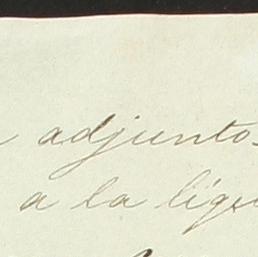 adjuntos
a la ligu